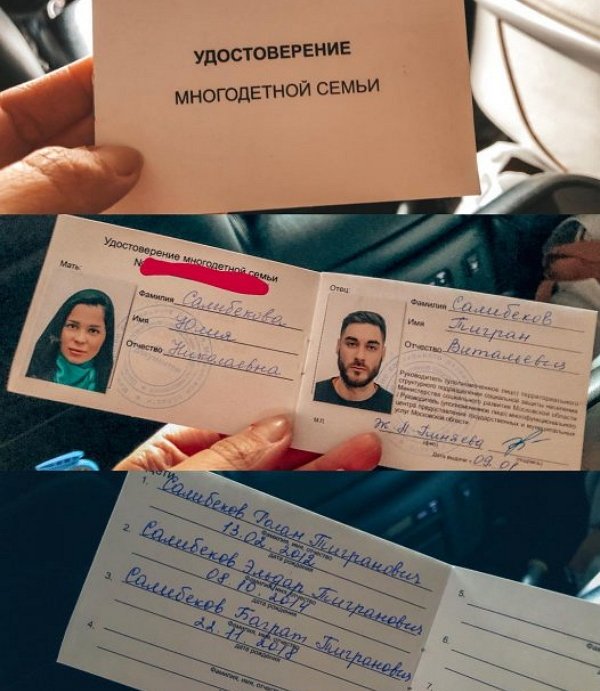 УДОСТОВЕРЕНИЕ
МНОГОДЕТНОЙ СЕМЬИ
Удостоверение многодетной семьи
№
Мать:
Фамилия Салибекова
Имя Юлия
Отчество Николаевна
Отец:
Фамилия Салибеков
Имя Тигран
Отчество Витальевич
Руководитель (уполномоченное лицо) территориального
структурного подразделения социальной защиты населения
Министерства социального развития Московской области
/ Руководитель (уполномоченное лицо) многофункционального
центра предоставления государственных и муниципальных
услуг Московской области
М.П.
(фио) (подпись)
Дата выдачи
1. Салибеков Тигранович
фамилия, имя, отчество
13.02.2012
дата рождения
2. Салибеков Эльдар Тигранович
фамилия, имя, отчество
08.10.2014
дата рождения
3. Салибеков Баграт Тигранович
фамилия, имя, отчество
22.11.2018
дата рождения
4.
фамилия, имя, отчество
5.
6.
7